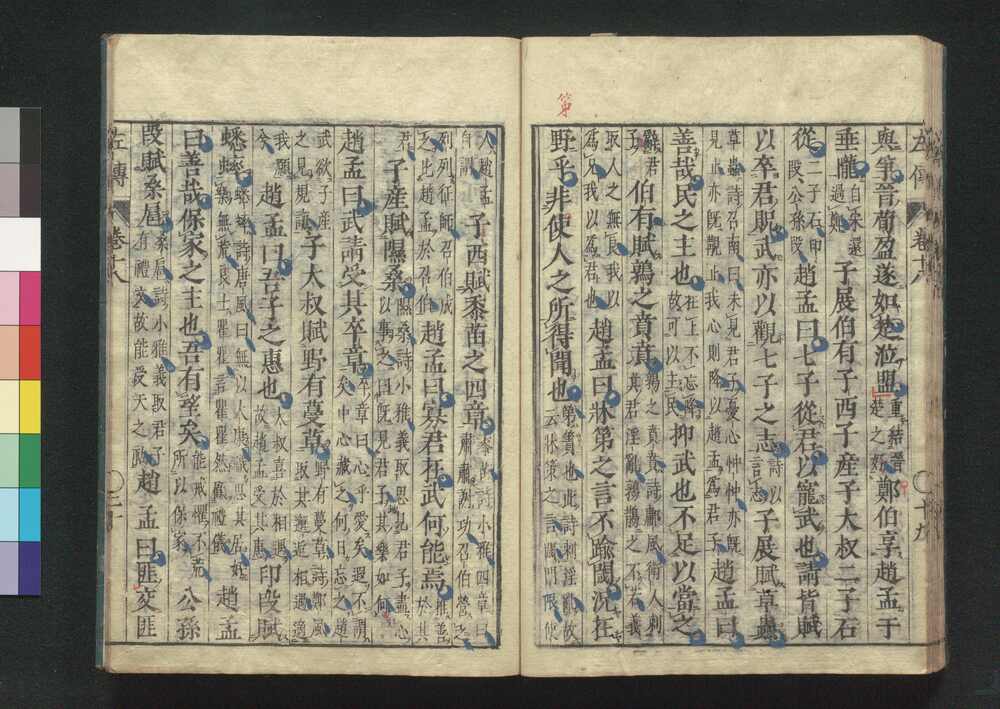 第
左傳
卷十八
十九
與爭晉荀盈遂如楚涖盟重結晉楚之好鄭伯享趙孟于
垂隴自宋還過鄭子展伯有子西子產子大叔二子石
從二子石印段公孫段趙孟曰七子從君以寵武也請皆賦
以卒君貺武亦以觀七子之志詩以言志子展賦草蟲
草蟲詩召南曰未見君子憂心忡忡亦既見止亦既覯止我心則降以趙孟為君子趙孟曰
善哉民之主也在上不忘降故可以主民抑武也不足以當之
辭君子伯有賦鶉之賁賁鶉之賁賁詩鄘風衛人刺其君淫亂鶉鵲之不若義
取人之無良我以為兄我以為君也趙孟曰牀笫之言不踰閾況在
野乎非使人之所得聞也笫簀也此詩刺淫亂故云牀笫之言閾門限使
人趙孟自謂子西賦黍苗之四章黍苗詩小雅四章曰肅肅謝功召伯營之
列列征師召伯成之比趙孟於召伯趙孟曰寡君在武何能焉推善於其
君子產賦隰桑隰桑詩小雅義取思見君子盡心以事之曰既見君子其樂如何
趙孟曰武請受其卒章卒章曰心乎愛矣遐不謂矣中心藏之何日忘之趙
武欲子產之見規誨子大叔賦野有蔓草野有蔓草詩鄭風取其邂逅相遇適
我願兮趙孟曰吾子之惠也大叔喜於相遇故趙孟受其惠印段賦
蟋蟀蟋蟀詩唐風曰無以大康職思其居好樂無荒良士瞿瞿言瞿瞿然顧禮儀趙孟
曰善哉保家之主也吾有望矣能戒懼不荒所以保家公孫
段賦桑扈桑扈詩小雅義取君子有禮文故能受天之祜趙孟曰匪交匪
左傳
卷十八
二十